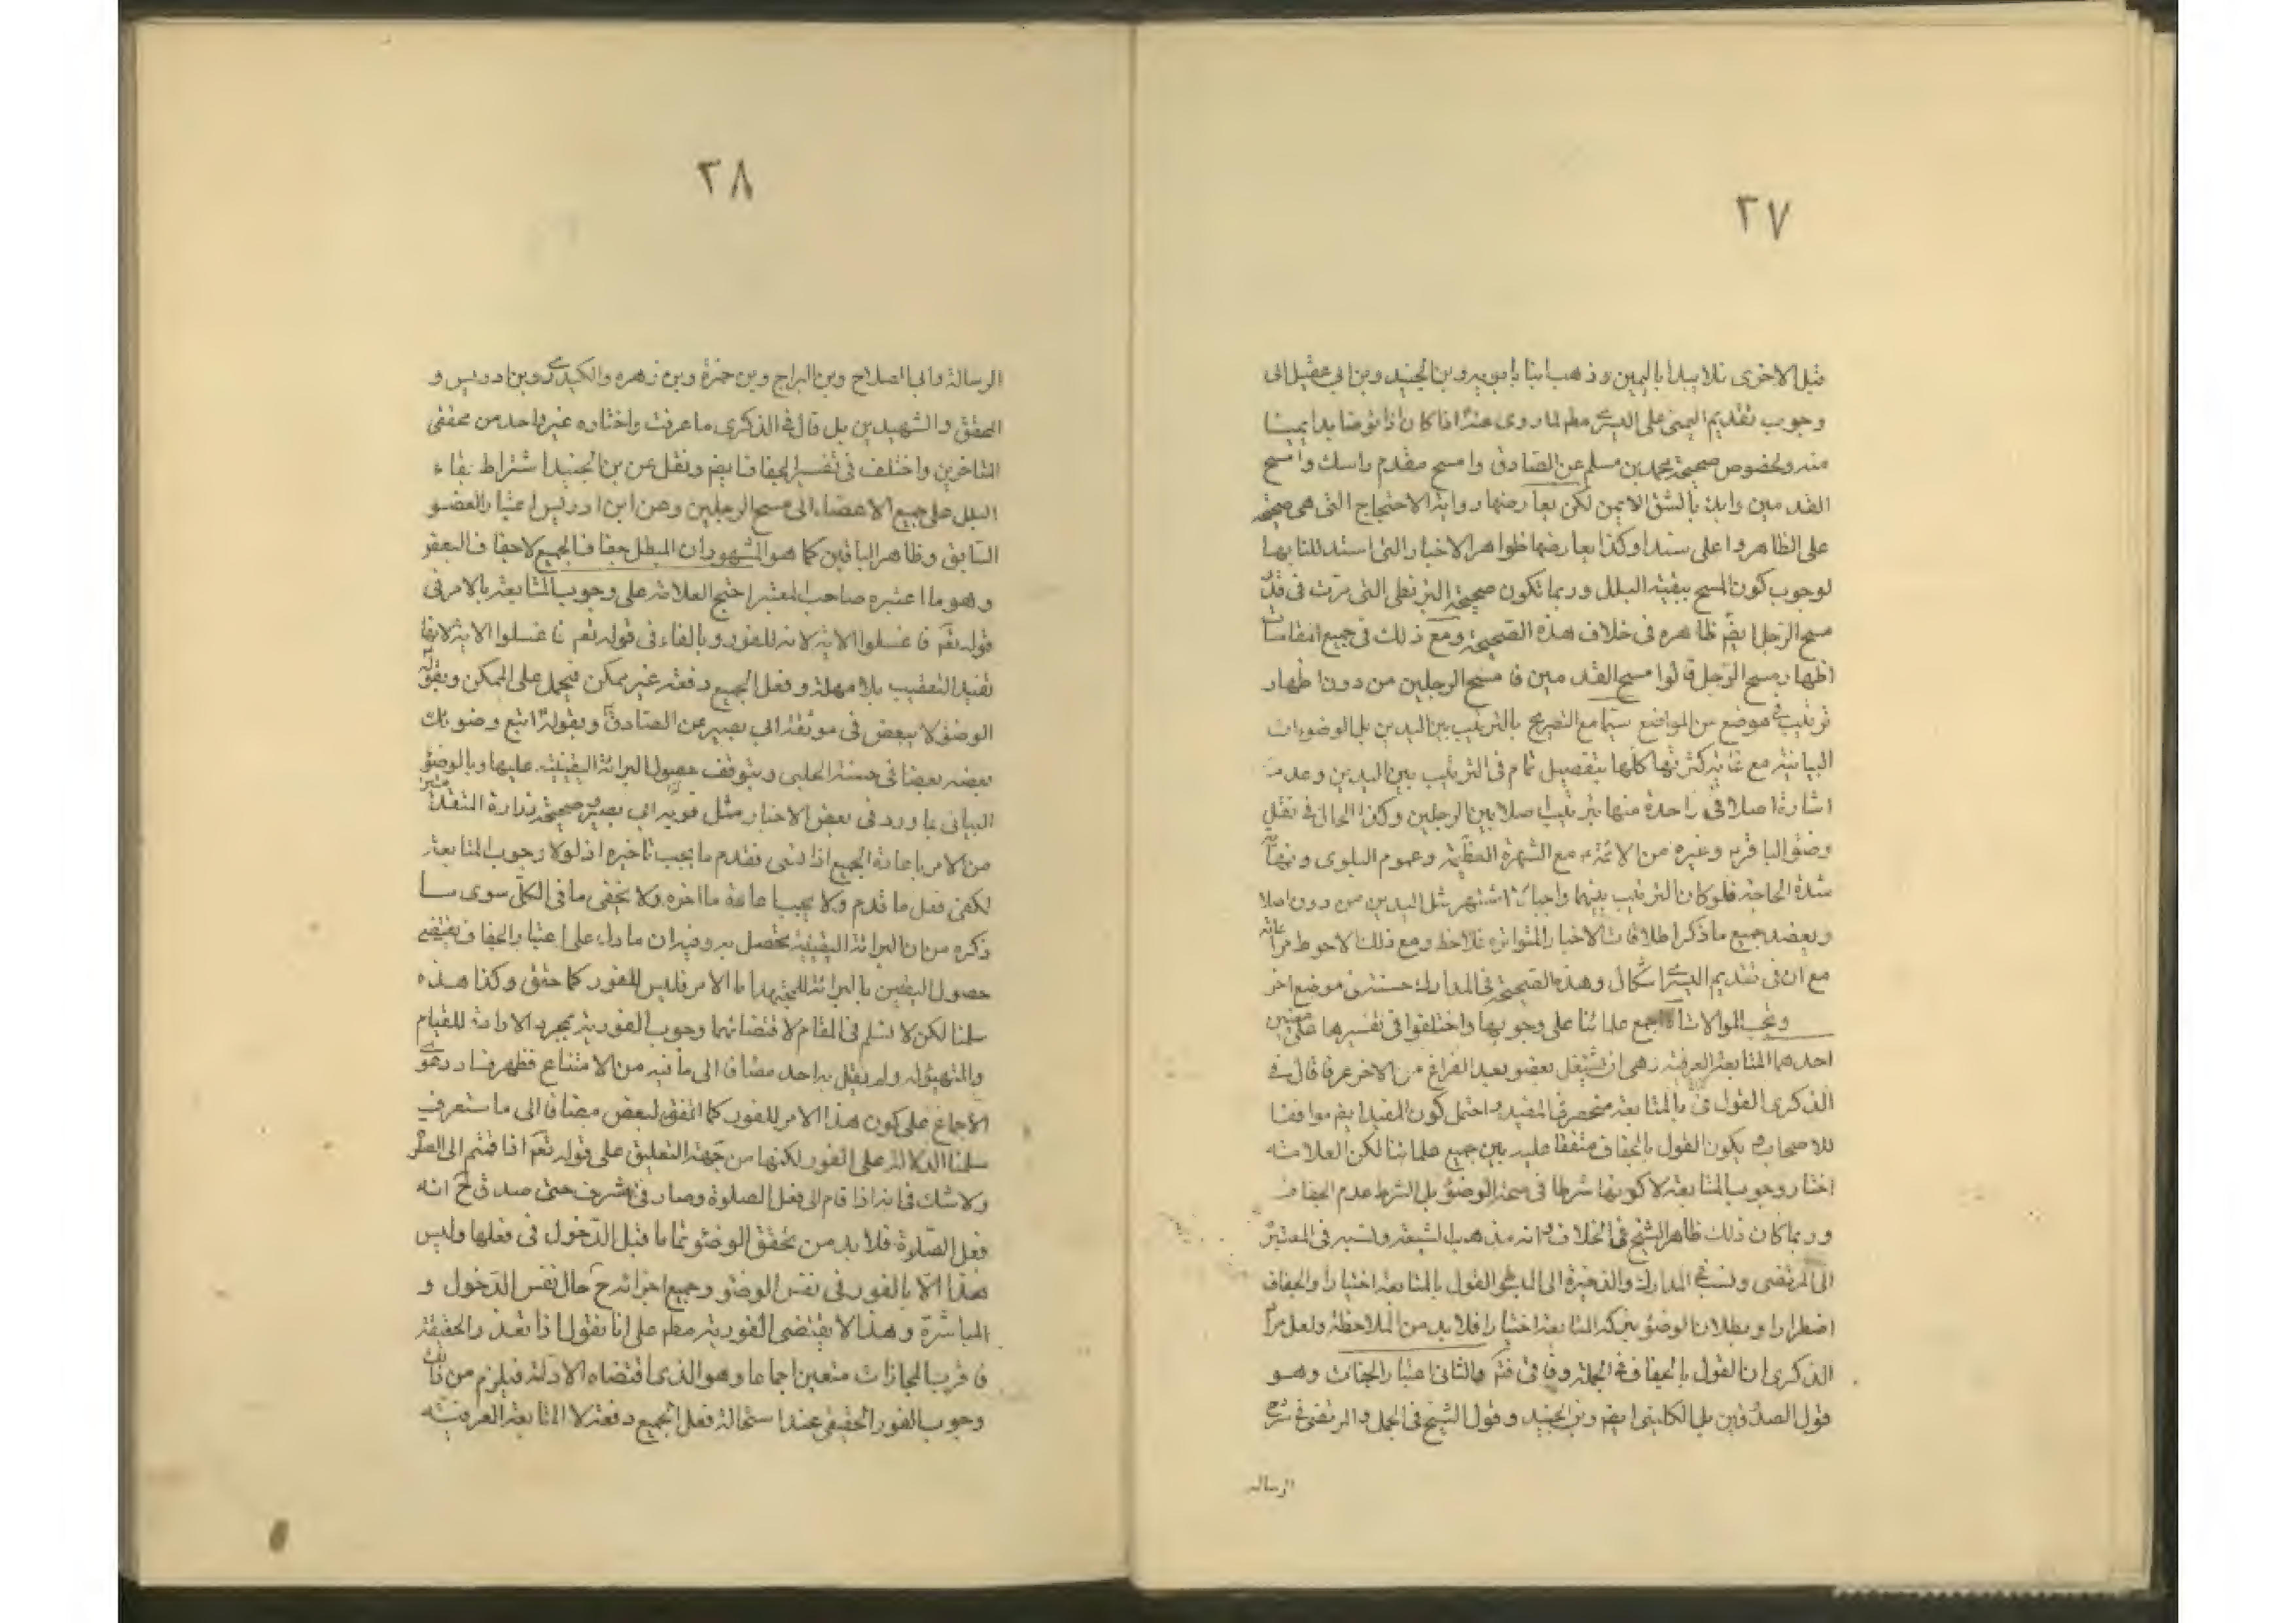 ٣٧
قبل الاخرى فلا يبدا باليمين وذهب ابنا بابويه وبن الجنيد وبن ابي عقيل الى
وجوب تقديم اليمنى على اليسرى مطم لما روى عنه اذا كان اذا توضا بدا بميامنه
منه ولخصوص صحيحة محمد بن مسلم عن الصادق وامسح مقدم راسك وامسح
القدمين وابدء بالشق الايمن لكن يعارضها رواية الاحتجاج التى هى صحيحة
على الظاهر واعلى سندا وكذا يعارضها ظواهر الاخبار التى استدللنا بها
لوجوب كون المسح ببقية البلل وربما تكون صحيحة البزنطى التى مرت فى قدر
مسح الرجل ايضم ظاهره فى خلاف هذه الصحيحة ومع ذلك فى جميع المقامات
اظهار مسح الرجل قالوا مسح القدمين فامسح الرجلين من دون اظهار
ترتيب فى موضع من المواضع سيما مع التصريح بالترتيب بين اليدين بل الوضوءات
البيانية مع غاية كثرتها كلها بتفصيل تمام فى الترتيب بين اليدين وعدم
اشارة اصلا فى واحدة منها بترتيب اصلا بين الرجلين وكذا الحال فى نقل
وضوء الباقر وغيره من الائمة مع الشهرة العظيمة وعموم البلوى ونهاية
شدة الحاجة فلو كان الترتيب بينهما واجبا لاشتهر مثل اليدين من دون اصلا
ويعضد جميع ما ذكر اطلاقات الاخبار المتواتره فلاحظ ومع ذلك الاحوط مراعاته
مع ان فى تقديم اليسرى اشكال وهذه الصحيحة فى المدارك حسنة فى موضع اخر
وتجب الموالات اجمع علمائنا على وجوبها واختلفوا فى تفسيرها على معنيين
احدهما المتابعة العرفية وهى ان يشتغل بعضو بعد الفراغ من الاخر عرفا قال فى
الذكرى القول فى بالمتابعة منحصر فى المفيد واحتمل كون المفيد ايضم موافقا
للاصحاب يكون القول بالجفاف متفقا عليه بين جميع علمائنا لكن العلامة
اختار وجوب المتابعة لا كونها شرطا فى صحة الوضوء بل الشرط عدم الجفاف
وربما كان ذلك ظاهر الشيخ فى الخلاف انه مذهب الشيعة ونسبه فى المعتبر
الى المرتضى ونسب فى المدارك والذخيرة الى المبسوط القول بالمتابعة اختيارا والجفاف
اضطرارا وبطلان الوضوء بترك المتابعة اختيارا فلابد من الملاحظة ولعل مراد
الذكرى ان القول بالجفاف فى الجملة وفاقى فتم والثانى اعتبار الجفاف وهو
قول الصدوقين بل الكلينى ايضم وبن الجنيد وقول الشيخ فى الجمل والمرتضى فى شرح
الرسالة
٣٨
الرسالة وابى الصلاح وبن البراج وبن حمزة وبن زهره والكيدرى وبن ادريس و
المحقق والشهيدين بل قال فى الذكرى ما عرفت واختاره غير واحد من محققى
المتاخرين واختلف فى تفسير الجفاف ايضم ونقل عن بن الجنيد اشتراط بقاء
البلل على جميع الاعضاء الى مسح الرجلين وعن ابن ادريس اعتبار العضو
السابق وظاهر الباقين كما هو المشهور ان المبطل جفاف الجميع لا جفاف البعض
وهو ما اعتبره صاحب المعتبر احتج العلامة على وجوب المتابعة بالامر فى
قوله تعم فاغسلوا الاية لانه للفور وبالفاء فى قوله تعم فاغسلوا الاية لانها
تفيد التعقيب بلا مهلة وفعل الجميع دفعة غير ممكن فيحمل على الممكن وبقوله
الوضوء لا يبعض فى موثقة ابى بصير عن الصادق وبقوله اتبع وضوئك
بعضه بعضا فى حسنة الحلبى وبتوقف حصول البرائة اليقينية عليها وبالوضوء
البيانى بما ورد فى بعض الاخبار مثل قويه ابى بصير وصحيحة زرارة المتقدمتين
من الامر باعادة الجميع اذا نسى فقدم ما يجب تاخيره اذ لولا وجوب المتابعة
لكفى فعل ما قدم ولا يجب اعادة ما اخره ولا يخفى ما فى الكل سوى ما
ذكره من ان البرائة اليقينية تحصل به وفيه ان ما دل على اعتبار الجفاف يقتضى
حصول اليقين بالبرائة للمجتهد اما الامر فليس للفور كما حقق وكذا هذه
سلمنا لكن لا نسلم فى المقام لاقتضائهما وجوب الفورية بمجرد الارادة للقيام
والتهيؤ له ولم يقل به احد مضافا الى ما فيه من الامتناع فظهر فساد دعوى
الاجماع على كون هذا الامر للفور كما اتفق لبعض مضافا الى ما ستعرف
سلمنا الدلالة على الفور لكنها من جهة التعليق على قوله تعم اذا قمتم الى الصلوة
ولا شك فى انه اذا قام الى فعل الصلوة وصار فى شرف حتى صدق ح انه
فعل الصلوة فلا بد من تحقق الوضوء تماما قبل الدخول فى فعلها وليس
هذا الا بالفور فى نفس الوضوء وجميع اجزائه ح حال نفس الدخول و
المباشرة وهذا لا يقتضى الفورية مطم على انا نقول اذا تعذر الحقيقة
فاقرب المجازات متعين اجماعا وهو الذى اقتضاه الادلة فيلزم من ذلك
وجوب الفور الحقيقى عند استحالة فعل الجميع دفعة لا المتابعة العرفية